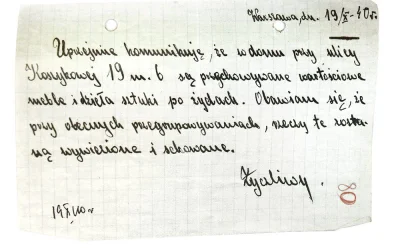 Warszawa, dn. 19/X-40 r.
Uprzejmie komunikuję, że w domu przy ulicy
Koszykowej 19 m. 6 są przechowywane wartościowe
meble i dzieła sztuki po żydach. Obawiam się, że
przy obecnych przegrupowywaniach, rzeczy te zosta-
ną wywiezione i schowane.
Życzliwy.
19 X 40 r
80